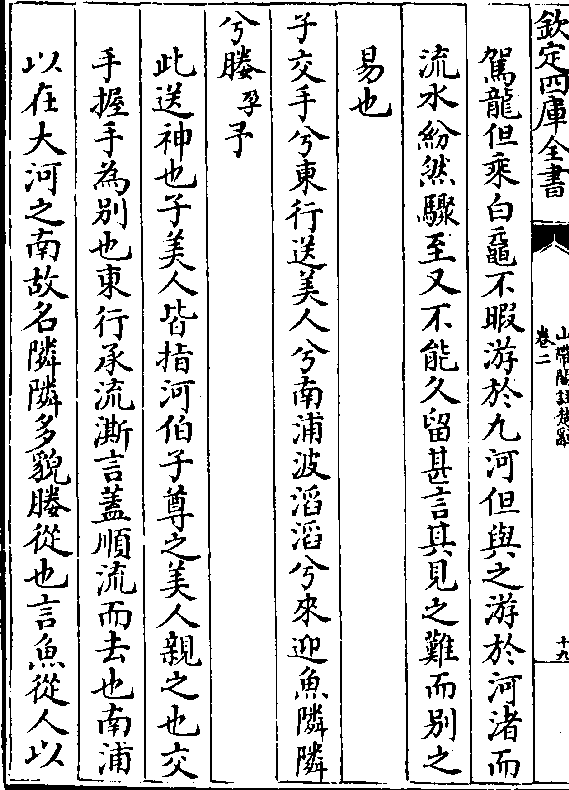 欽定四庫全書
山帶閣註楚辭
卷二
十九
駕龍但乘白黿不暇游於九河但與之游於河渚而
流水紛然驟至又不能久留甚言其見之難而別之
易也
子交手兮東行送美人兮南浦波滔滔兮來迎魚隣隣
兮媵孕予
此送神也子美人皆指河伯子尊之美人親之也交
手握手為別也東行承流澌言蓋順流而去也南浦
以在大河之南故名隣隣多貌媵從也言魚從人以